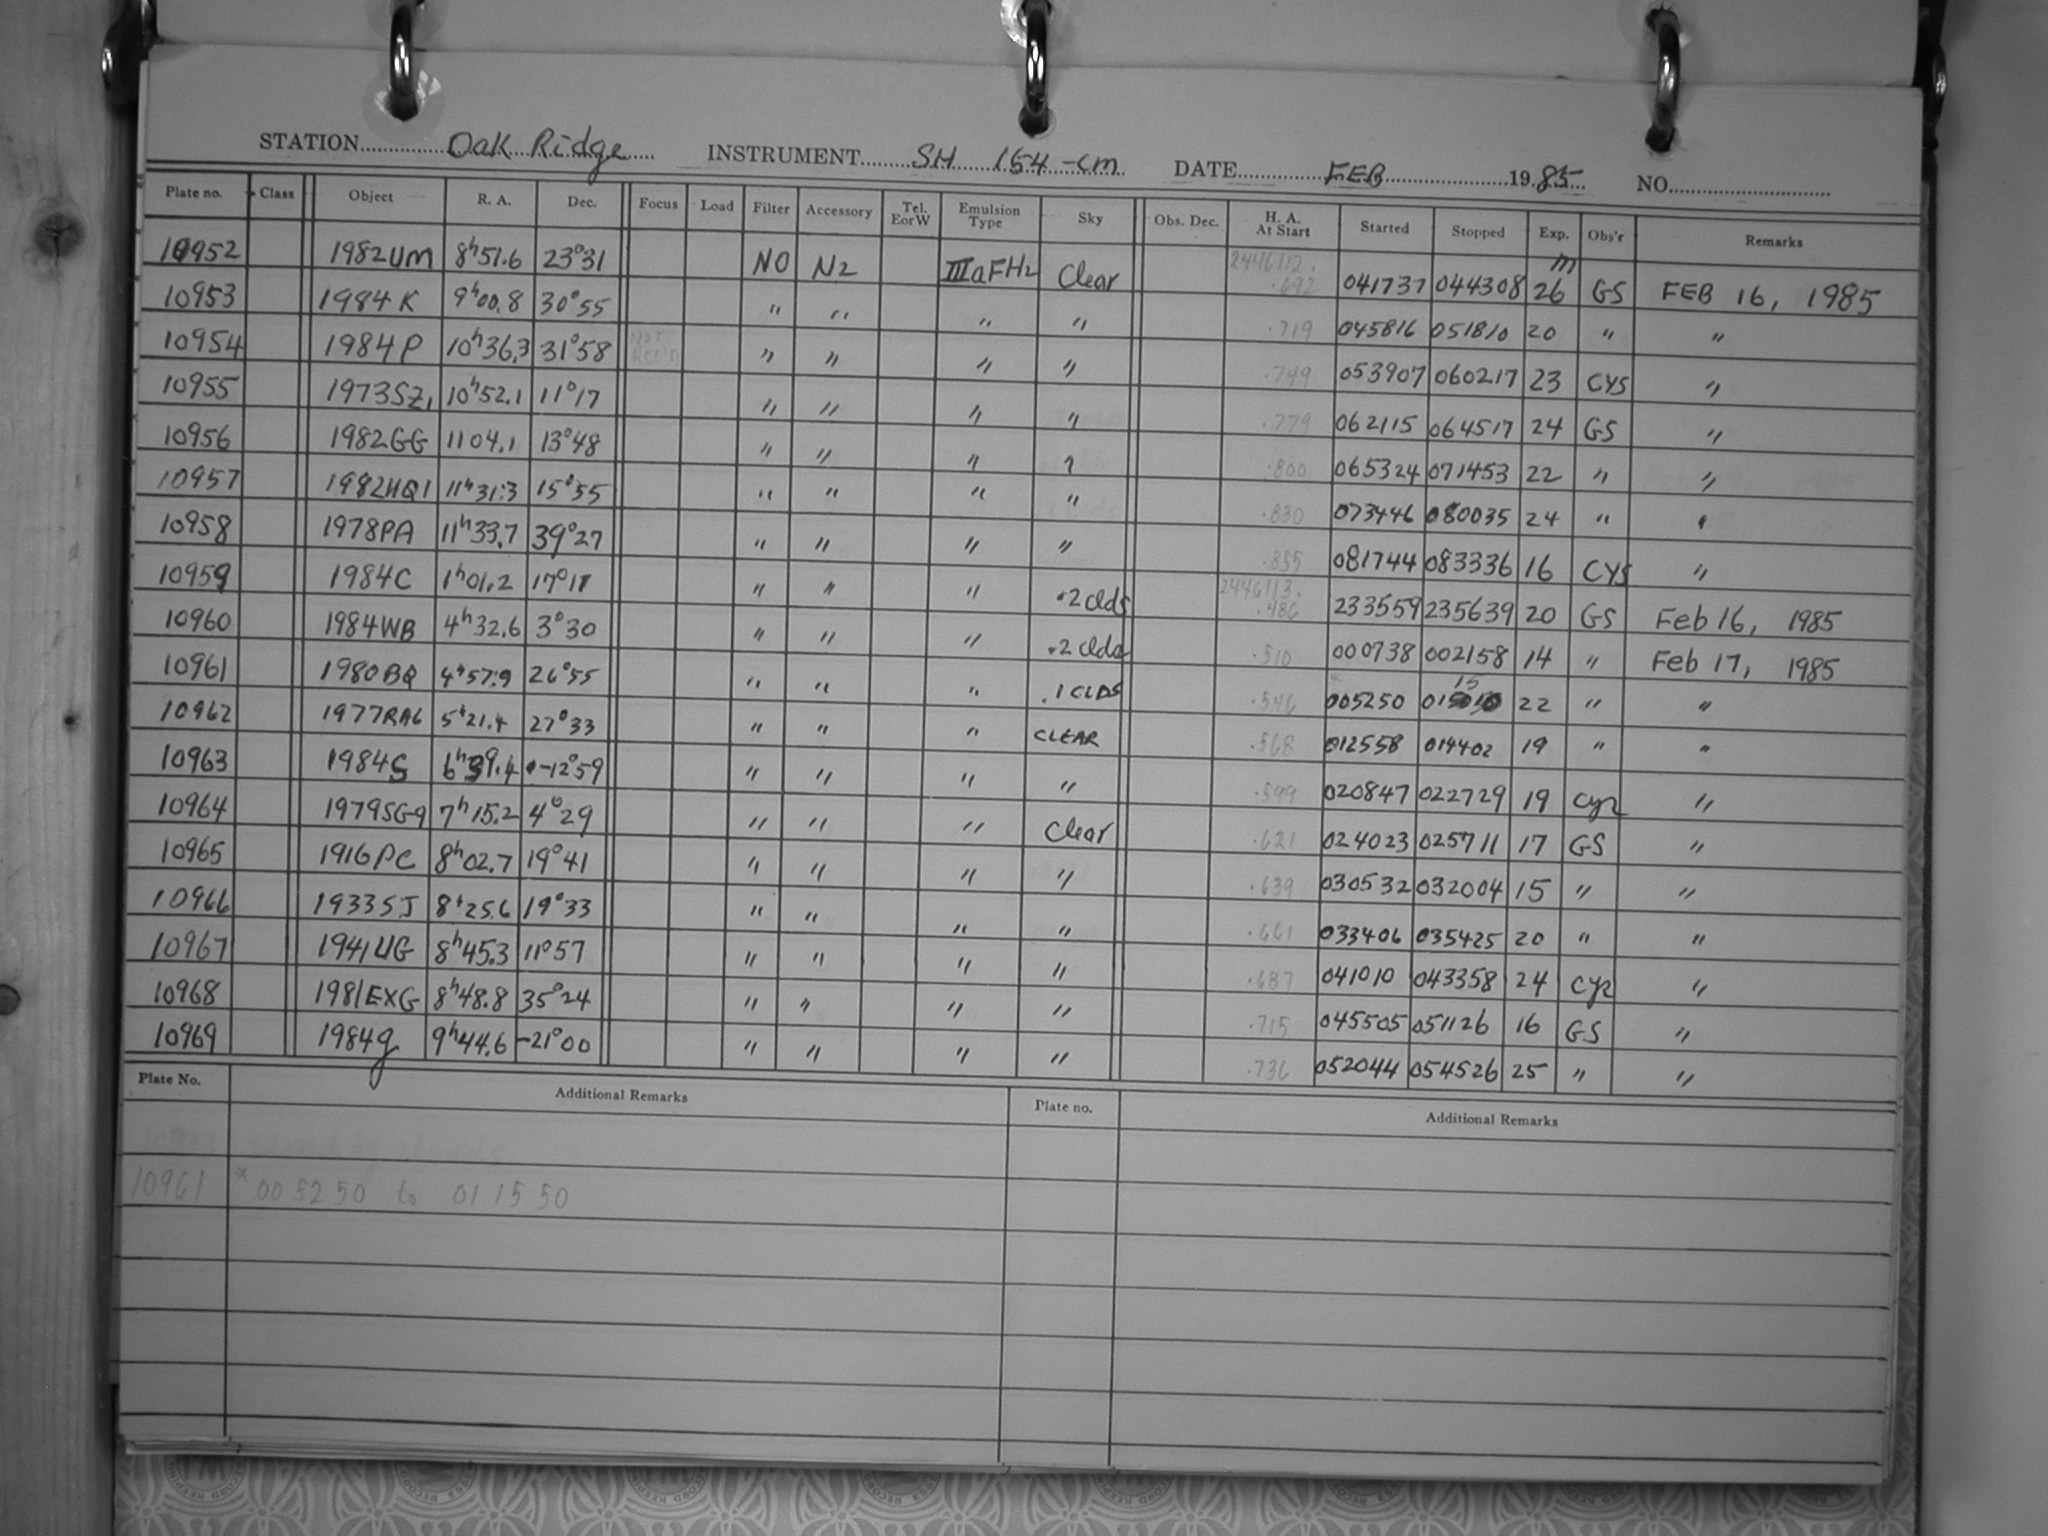 STATION Oak Ridge INSTRUMENT SH 154-cm DATE FEB 1985 NO.
Plate no. Class Object R. A. Dec. Focus Load Filter Accessory Tel. E or W Emulsion Type Sky Obs. Dec. H. A. At Start Started Stopped Exp. Obs'r Remarks
10952 1982UM 8h51.6 23°31 NO N2 IIIaFH2 Clear 2446112. .692 041737 044308 26m GS FEB 16, 1985
10953 1984K 9h00.8 30°55 " " " " .719 045816 051810 20 " "
10954 1984P 10h36.3 31°58 Not Rec'd " " " " .749 053907 060217 23 CYS "
10955 1973SZ1 10h52.1 11°17 " " " " .779 062115 064517 24 GS "
10956 1982GG 11 04.1 13°48 " " " " .800 065324 071453 22 " "
10957 1982HQ1 11h31.3 15°55 " " " " .830 073446 080035 24 " "
10958 1978PA 11h33.7 39°27 " " " " .855 081744 083336 16 CYS "
10959 1984C 1h01.2 17°17 " " " .2 clds 2446113. .486 233559 235639 20 GS Feb 16, 1985
10960 1984WB 4h32.6 3°30 " " " .2 clds .510 000738 002158 14 " Feb 17, 1985
10961 1980BQ 4h57.9 26°55 " " " .1 CLDS .546 * 005250 22 " "
10962 1977RA6 5h21.4 27°33 " " " CLEAR .568 012558 014402 19 " "
10963 1984S 6h39.4 -12°59 " " " " .599 020847 022729 19 Cyr "
10964 1979SG9 7h15.2 4°29 " " " Clear .621 024023 025711 17 GS "
10965 1916PC 8h02.7 19°41 " " " " .639 030532 032004 15 " "
10966 1933SJ 8h25.6 19°33 " " " " .661 033406 035425 20 " "
10967 1941UG 8h45.3 11°57 " " " " .687 041010 043358 24 Cyr "
10968 1981EXG 8h48.8 35°24 " " " " .715 045505 051126 16 GS "
10969 1984g 9h44.6 -21°00 " " " " .736 052044 054526 25 " "
Plate No. Additional Remarks Plate no. Additional Remarks
10961 * 00 52 50 to 01 15 50